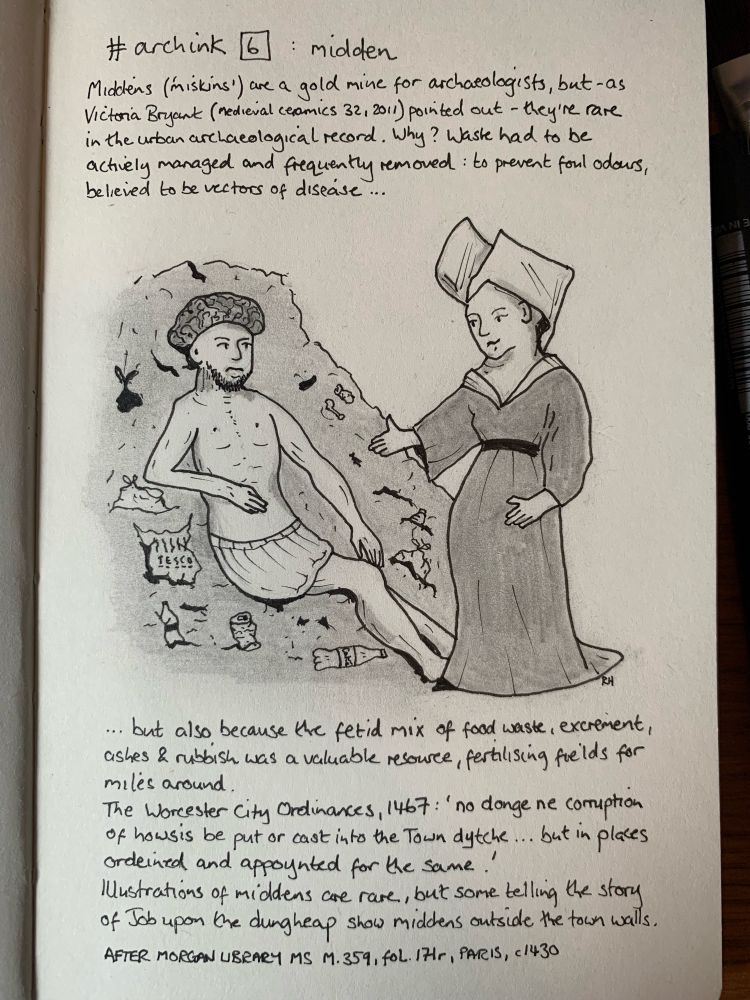 #archink 6 : midden
Middens ('miskins') are a gold mine for archaeologists, but - as
Victoria Bryant (Medieval Ceramics 32, 2011) pointed out - they're rare
in the urban archaeological record. Why? Waste had to be
actively managed and frequently removed : to prevent foul odours,
believed to be vectors of disease ...
TESCO
RH
... but also because the fetid mix of food waste, excrement,
ashes & rubbish was a valuable resource, fertilising fields for
miles around.
The Worcester City Ordinances, 1467 : 'no donge ne corruption
of howsis be put or cast into the Town dytche ... but in places
ordeined and appoynted for the same.'
Illustrations of middens are rare, but some telling the story
of Job upon the dungheap show middens outside the town walls.
AFTER MORGAN LIBRARY MS M.359, foL. 171r, PARIS, c1430